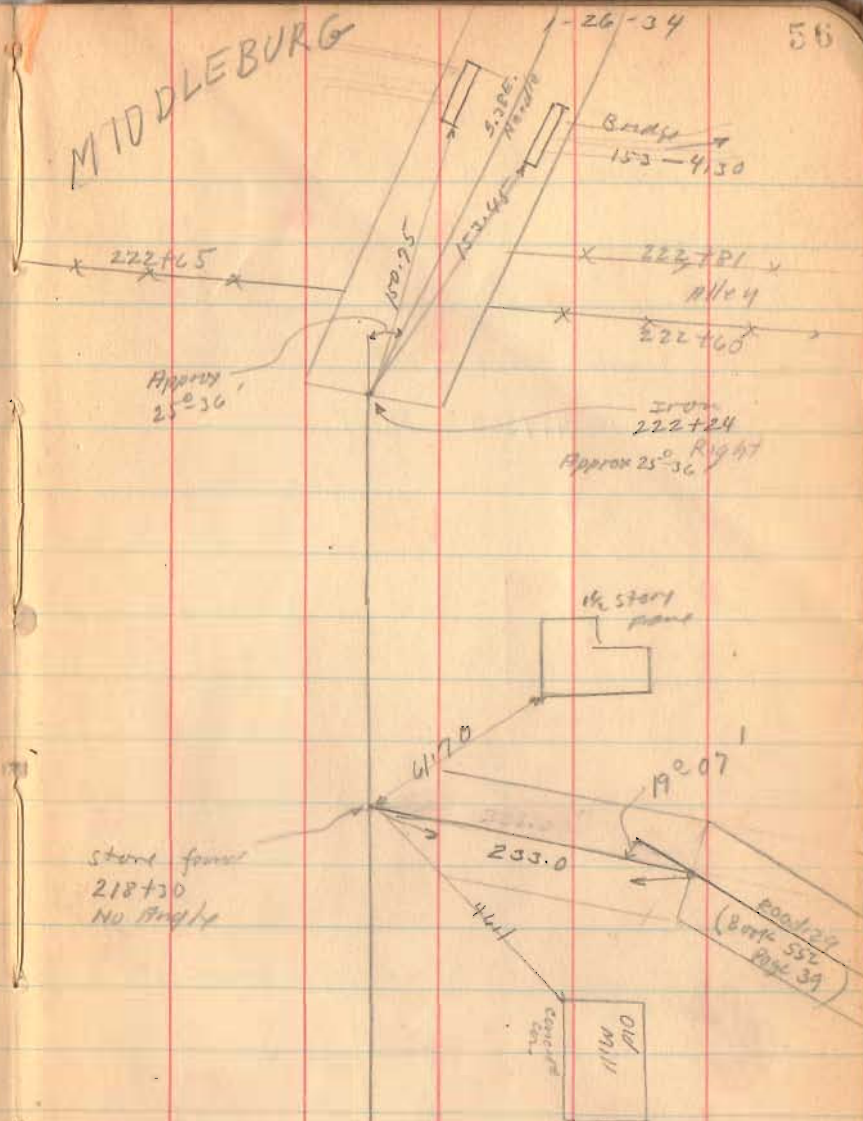 1-26-34
56
MIDDLEBURG
S. 38 E.
Needle
Bridge
153-4130
150.95
153.45
222+65
222+81
Alley
222+60
Approx
25°-36'
Iron
222+24
Right
Approx 25°-36'
1½ Story
frame
61.70
19°07'
233.0
Stone found
218+30
No Angle
46.1
Road 129
(Book 552
Page 39)
concrete
cor.
Old
Mill